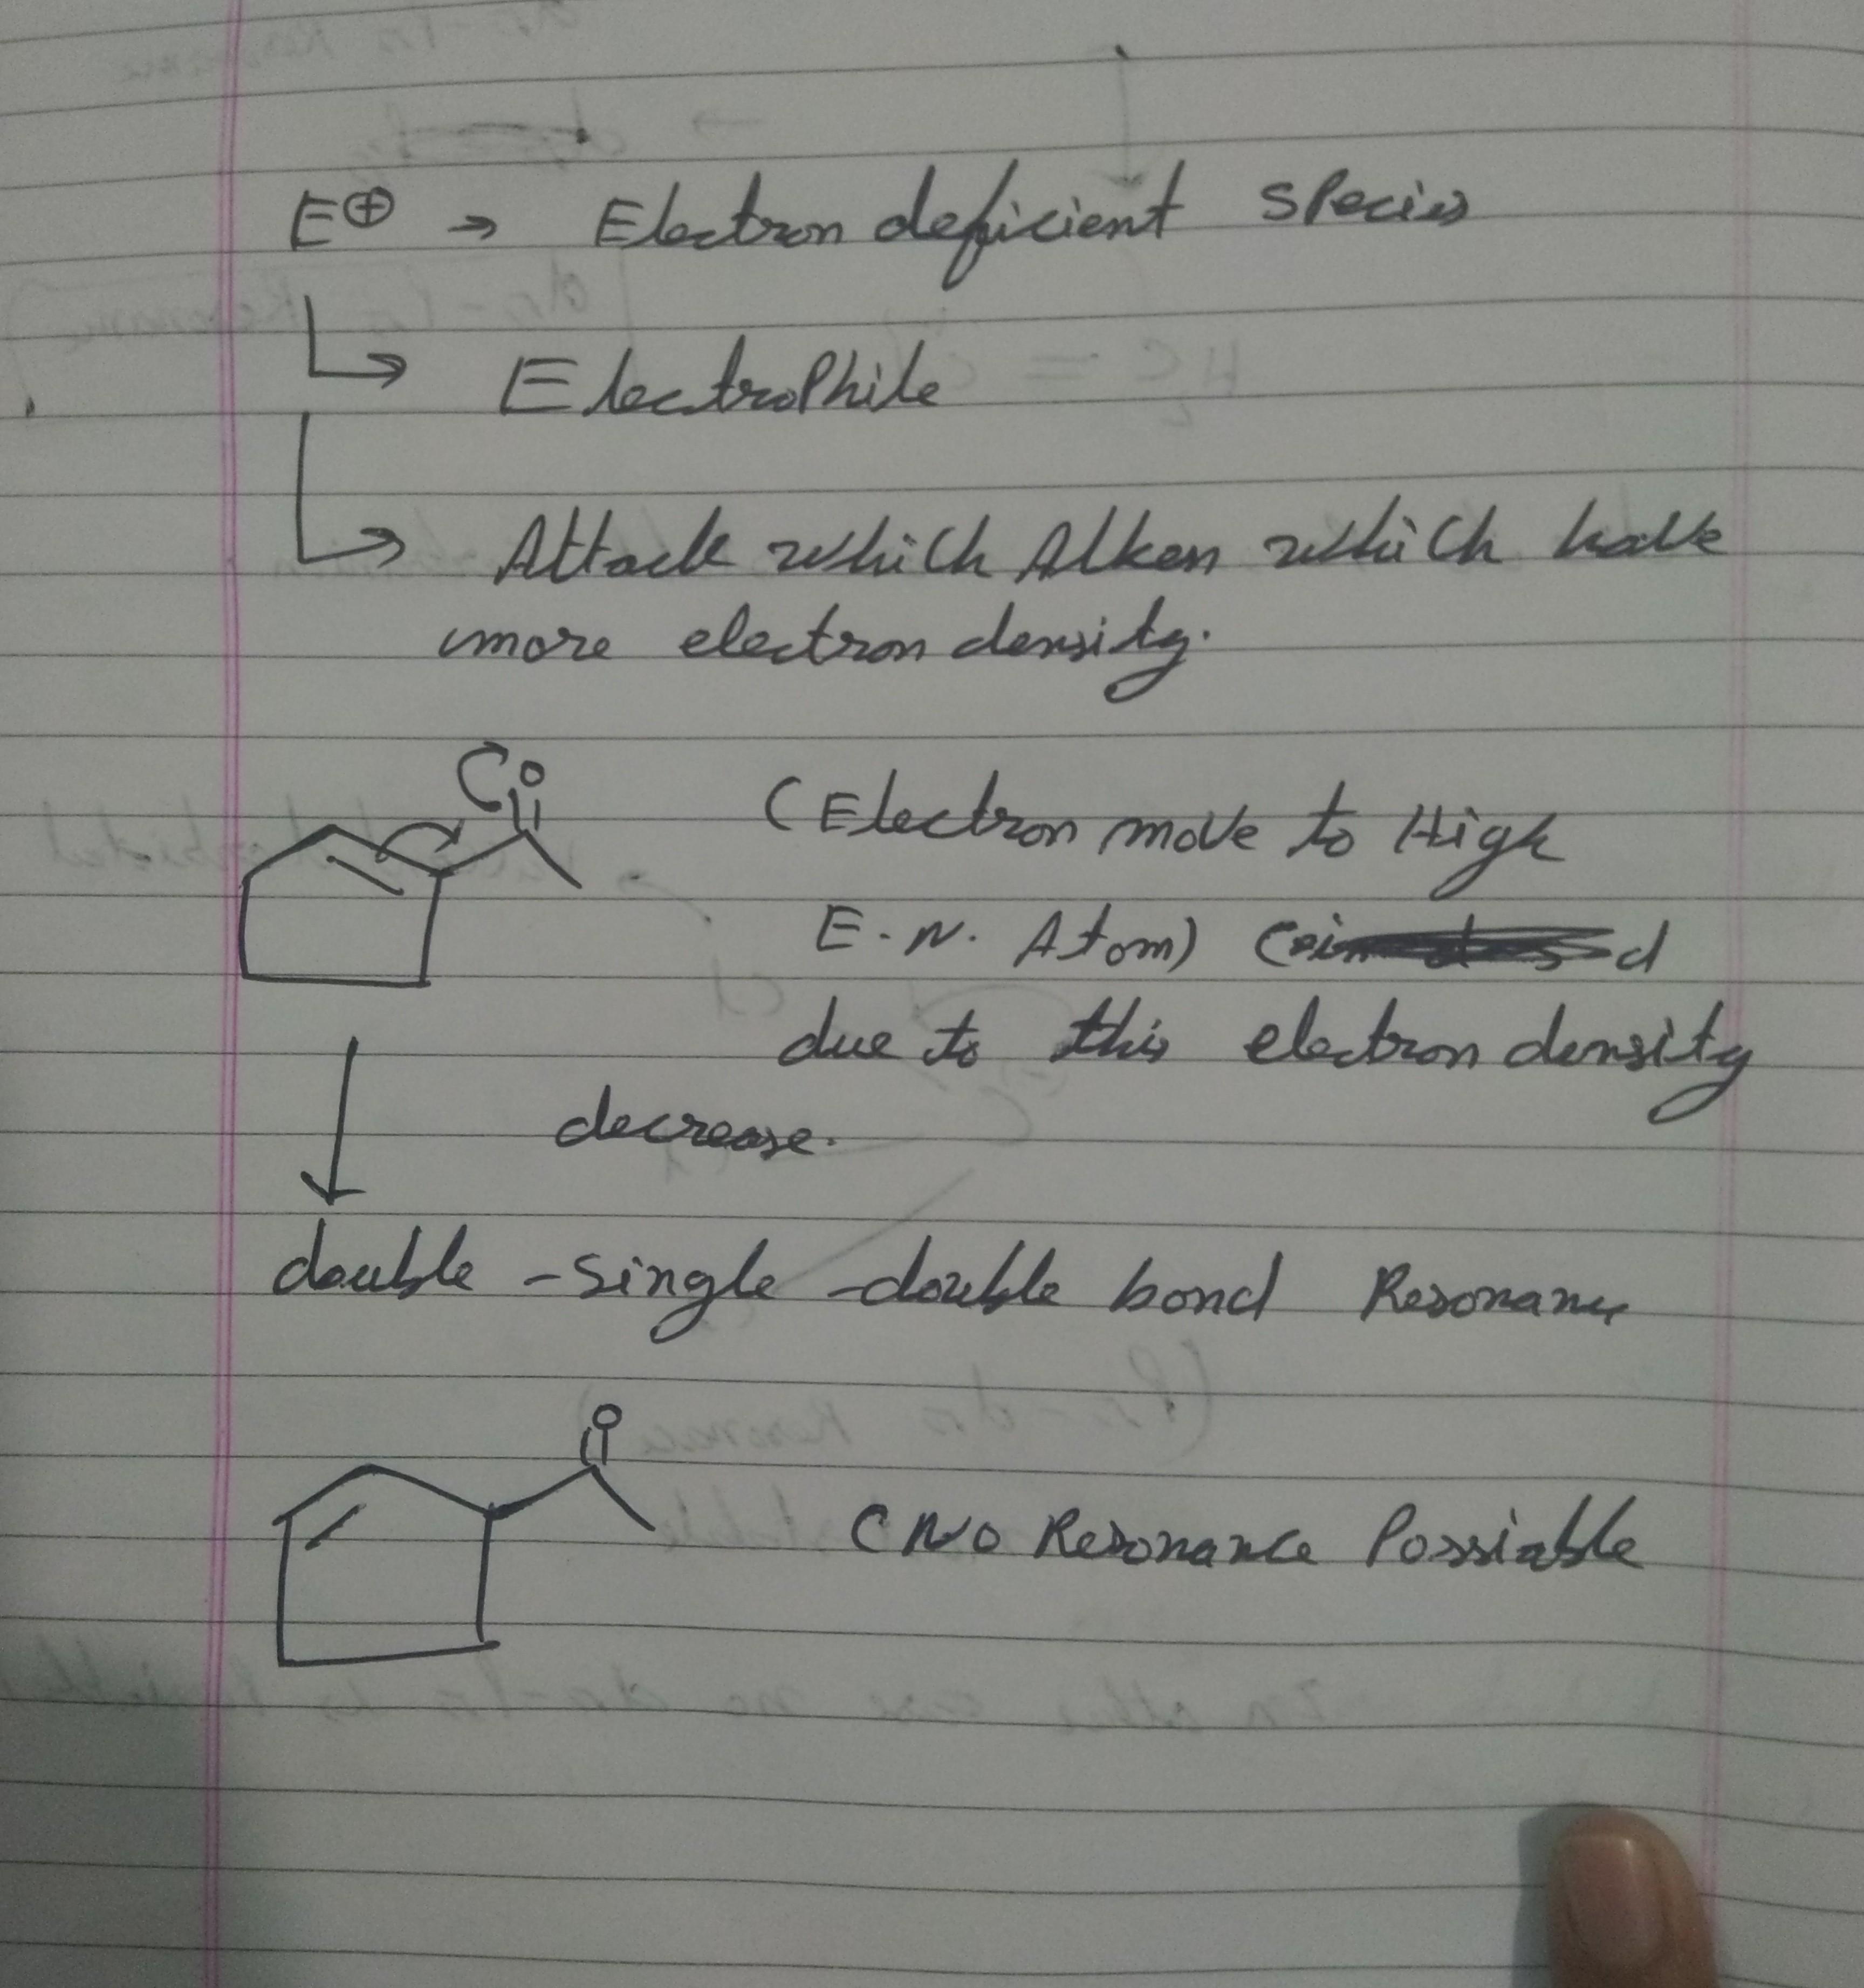 E⊕ → Electron deficient species
↳ Electrophile
↳ Attack which Alken which have
more electron density.
O
(Electron move to High
E.N. Atom)
due to this electron density
decrease.
double - single - double bond Resonance
O
(No Resonance Possiable